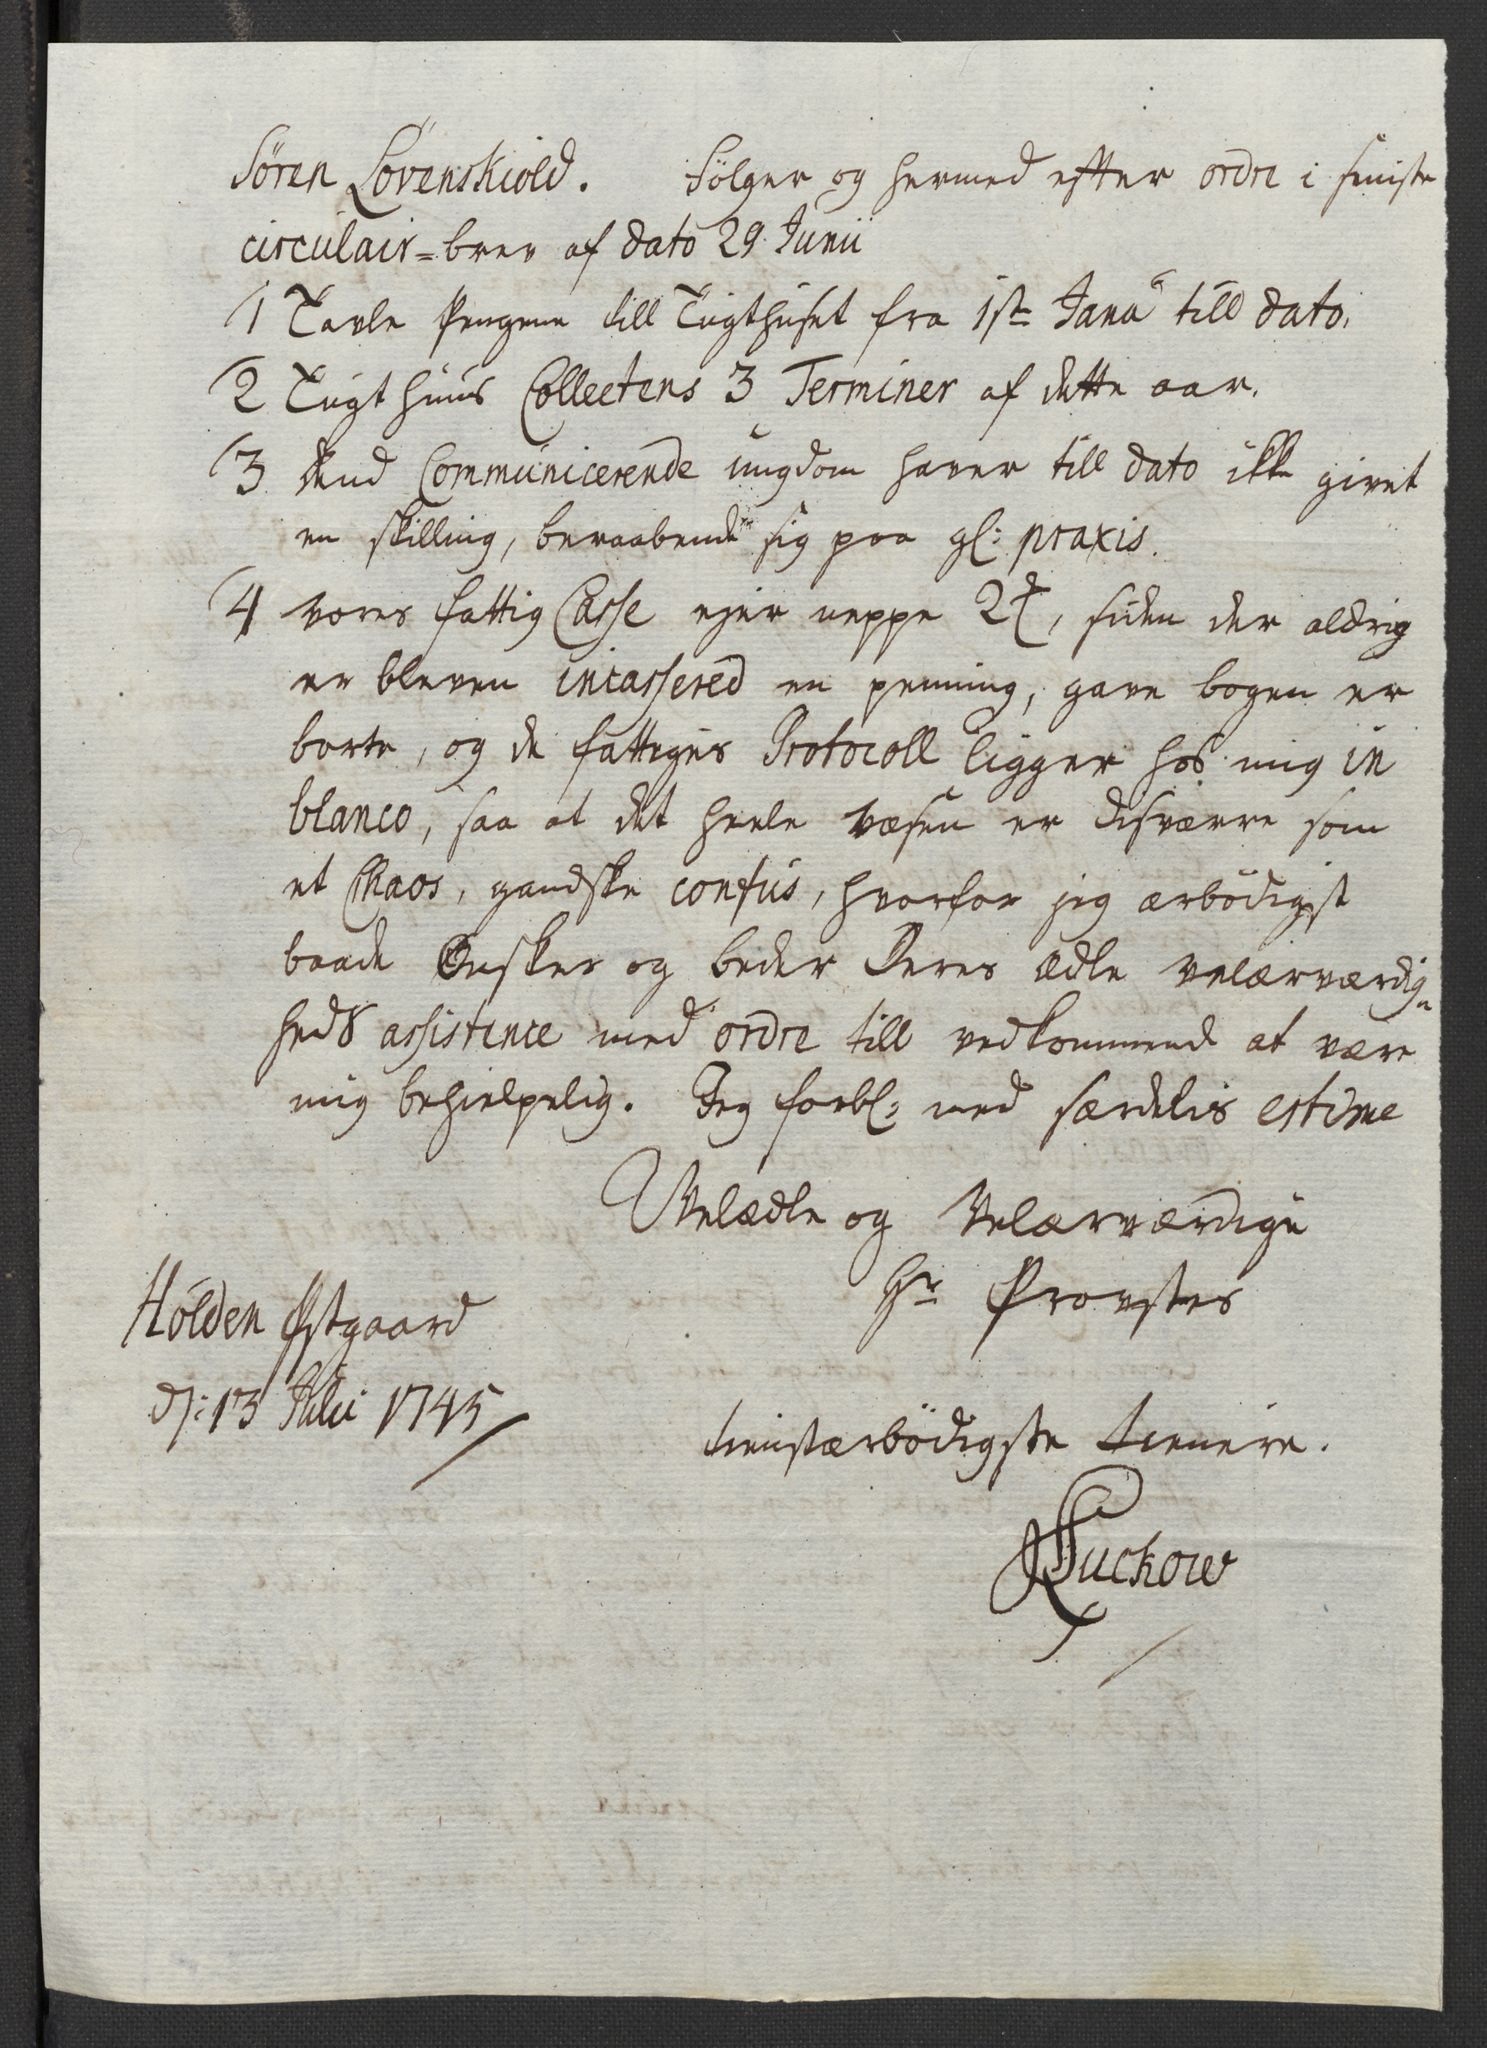 Søren Løvenskiold. Følger og hermed efter ordre i seniste
circulair=brev af dato 29 Junii
1 Tavle Pengene till Tugthuset fra 1ste Janu till dato.
2 Tugt huus Collectens 3 Terminer af dette aar.
3 dend Communicerende ungdom haver till dato ikke givet
en skilling, beraabende sig paa gl: praxis.
4 vores fattig Casse ejer neppe 2 , siden der aldrig
er bleven incassered en penning, gave bogen er
borte, og de fattiges Protocoll ligger hos mig in
blanco, saa at det heele væsen er disværre som
et Chaos, gandske confus, hvorfor jeg ærbødigst
baade Ønsker og beder Deres ædle velærværdig=
heds assistence med ordre till vedkommend at være
mig behielpelig. Jeg forbl: med særdelis estime
Velædle og Velærværdige
Hr Provstes
Holden Østgaard
d: 13 Julii 1745
tienstærbødigste tienere.
Suckow